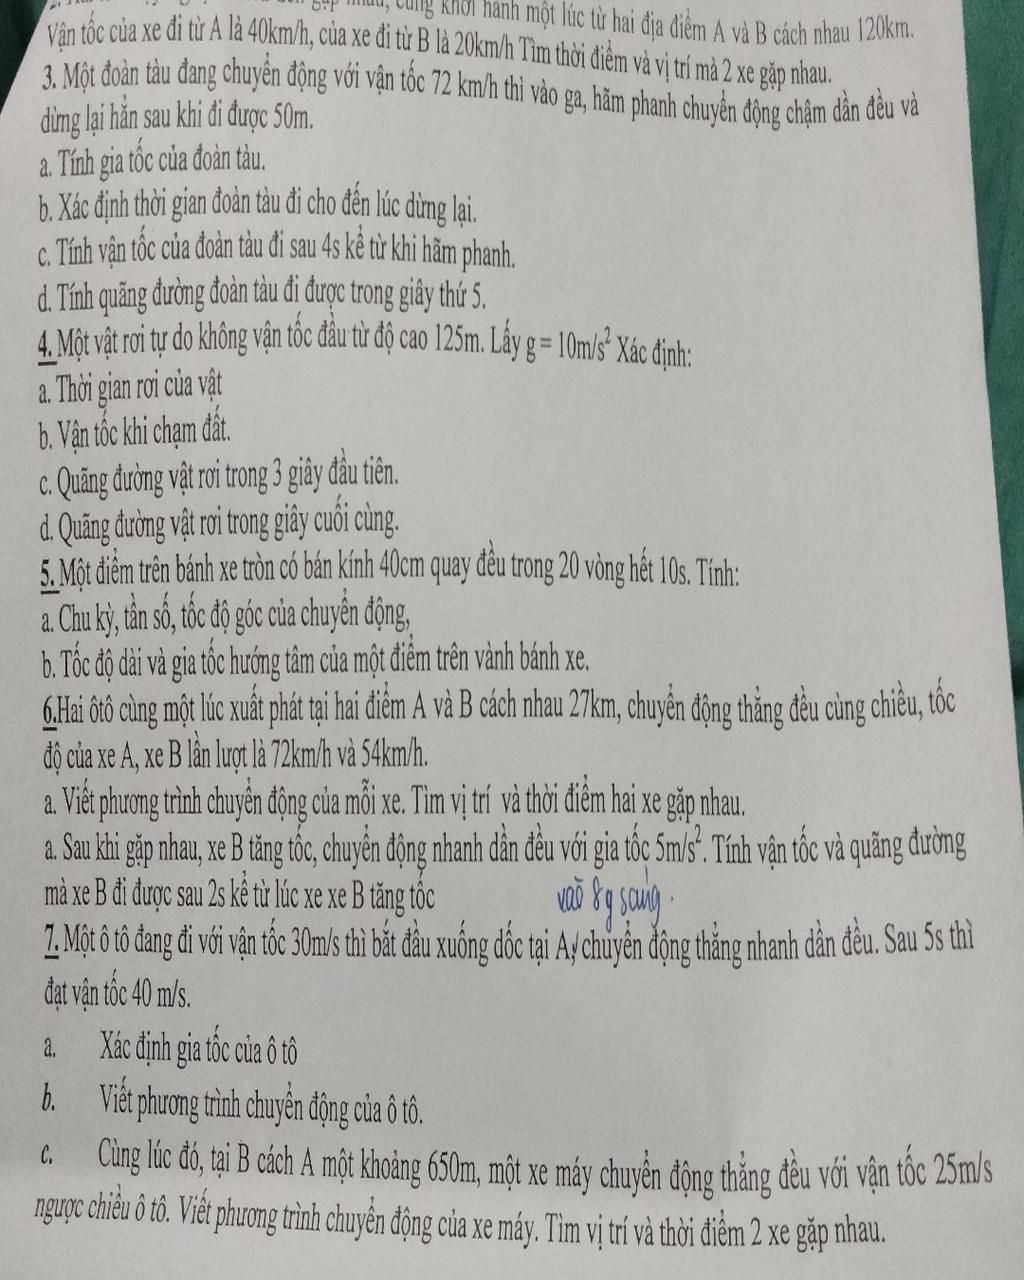 gặp nhau, cùng khởi hành một lúc từ hai địa điểm A và B cách nhau 120km.
Vận tốc của xe đi từ A là 40km/h, của xe đi từ B là 20km/h Tìm thời điểm và vị trí mà 2 xe gặp nhau.
3. Một đoàn tàu đang chuyển động với vận tốc 72 km/h thì vào ga, hãm phanh chuyển động chậm dần đều và
dừng lại hẳn sau khi đi được 50m.
a. Tính gia tốc của đoàn tàu.
b. Xác định thời gian đoàn tàu đi cho đến lúc dừng lại.
c. Tính vận tốc của đoàn tàu đi sau 4s kể từ khi hãm phanh.
d. Tính quãng đường đoàn tàu đi được trong giây thứ 5.
4. Một vật rơi tự do không vận tốc đầu từ độ cao 125m. Lấy g = 10m/s² Xác định:
a. Thời gian rơi của vật
b. Vận tốc khi chạm đất.
c. Quãng đường vật rơi trong 3 giây đầu tiên.
d. Quãng đường vật rơi trong giây cuối cùng.
5. Một điểm trên bánh xe tròn có bán kính 40cm quay đều trong 20 vòng hết 10s. Tính:
a. Chu kỳ, tần số, tốc độ góc của chuyển động,
b. Tốc độ dài và gia tốc hướng tâm của một điểm trên vành bánh xe.
6.Hai ôtô cùng một lúc xuất phát tại hai điểm A và B cách nhau 27km, chuyển động thẳng đều cùng chiều, tốc
độ của xe A, xe B lần lượt là 72km/h và 54km/h.
a. Viết phương trình chuyển động của mỗi xe. Tìm vị trí và thời điểm hai xe gặp nhau.
a. Sau khi gặp nhau, xe B tăng tốc, chuyển động nhanh dần đều với gia tốc 5m/s². Tính vận tốc và quãng đường
mà xe B đi được sau 2s kể từ lúc xe xe B tăng tốc
vào 8g sáng.
7. Một ô tô đang đi với vận tốc 30m/s thì bắt đầu xuống dốc tại A, chuyển động thẳng nhanh dần đều. Sau 5s thì
đạt vận tốc 40 m/s.
a. Xác định gia tốc của ô tô
b. Viết phương trình chuyển động của ô tô.
c. Cùng lúc đó, tại B cách A một khoảng 650m, một xe máy chuyển động thẳng đều với vận tốc 25m/s
ngược chiều ô tô. Viết phương trình chuyển động của xe máy. Tìm vị trí và thời điểm 2 xe gặp nhau.